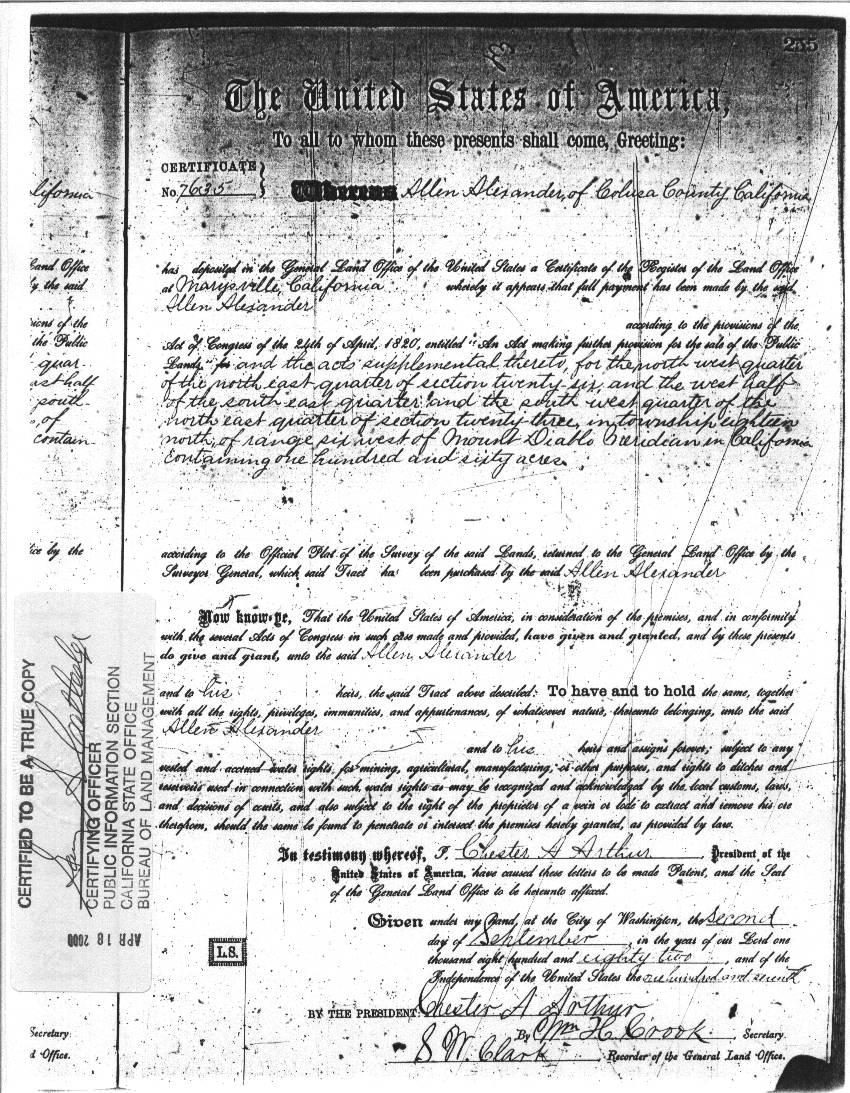 235
The United States of America,
To all to whom these presents shall come, Greeting:
CERTIFICATE
No. 7635
Whereas Allen Alexander, of Colusa County, California,
has deposited in the General Land Office of the United States a Certificate of the Register of the Land Office
at Marysville, California whereby it appears that full payment has been made by the said
Allen Alexander
according to the provisions of the
Act of Congress of the 24th of April, 1820, entitled "An Act making further provision for the sale of the Public
Lands," for and the acts supplemental thereto, for the north west quarter
of the north east quarter of section twenty-six, and the west half
of the south east quarter and the south west quarter of the
north east quarter of section twenty-three, in township eighteen
north, of range six west of Mount Diablo Meridian in California
containing one hundred and sixty acres
according to the Official Plat of the Survey of the said Lands, returned to the General Land Office by the
Surveyor General, which said Tract has been purchased by the said Allen Alexander
Now know ye, That the United States of America, in consideration of the premises, and in conformity
with the several Acts of Congress in such case made and provided, have given and granted, and by these presents
do give and grant, unto the said Allen Alexander
and to his heirs, the said Tract above described: To have and to hold the same, together
with all the rights, privileges, immunities, and appurtenances, of whatsoever nature, thereunto belonging, unto the said
Allen Alexander
and to his heirs and assigns forever; subject to any
vested and accrued water rights, for mining, agricultural, manufacturing, or other purposes, and rights to ditches and
reservoirs used in connection with such, water rights as may be recognized and acknowledged by the local customs, laws,
and decisions of courts, and also subject to the right of the proprietor of a vein or lode to extract and remove his ore
therefrom, should the same be found to penetrate or intersect the premises hereby granted, as provided by law.
In testimony whereof, I, Chester A Arthur, President of the
United States of America, have caused these letters to be made Patent, and the Seal
of the General Land Office to be hereunto affixed.
Given under my hand, at the City of Washington, the second
day of September, in the year of our Lord one
thousand eight hundred and eighty two, and of the
Independence of the United States the one hundred and seventh
L.S.
BY THE PRESIDENT: Chester A Arthur
By Wm H. Crook, Secretary.
S W. Clark, Recorder of the General Land Office.
lifornia
Land Office
by the said
ions of the
the Public
quar-
ast half
south
, of
contain-
ice by the
Secretary.
d Office.
CERTIFIED TO BE A TRUE COPY
CERTIFYING OFFICER
PUBLIC INFORMATION SECTION
CALIFORNIA STATE OFFICE
BUREAU OF LAND MANAGEMENT
APR 18 2000